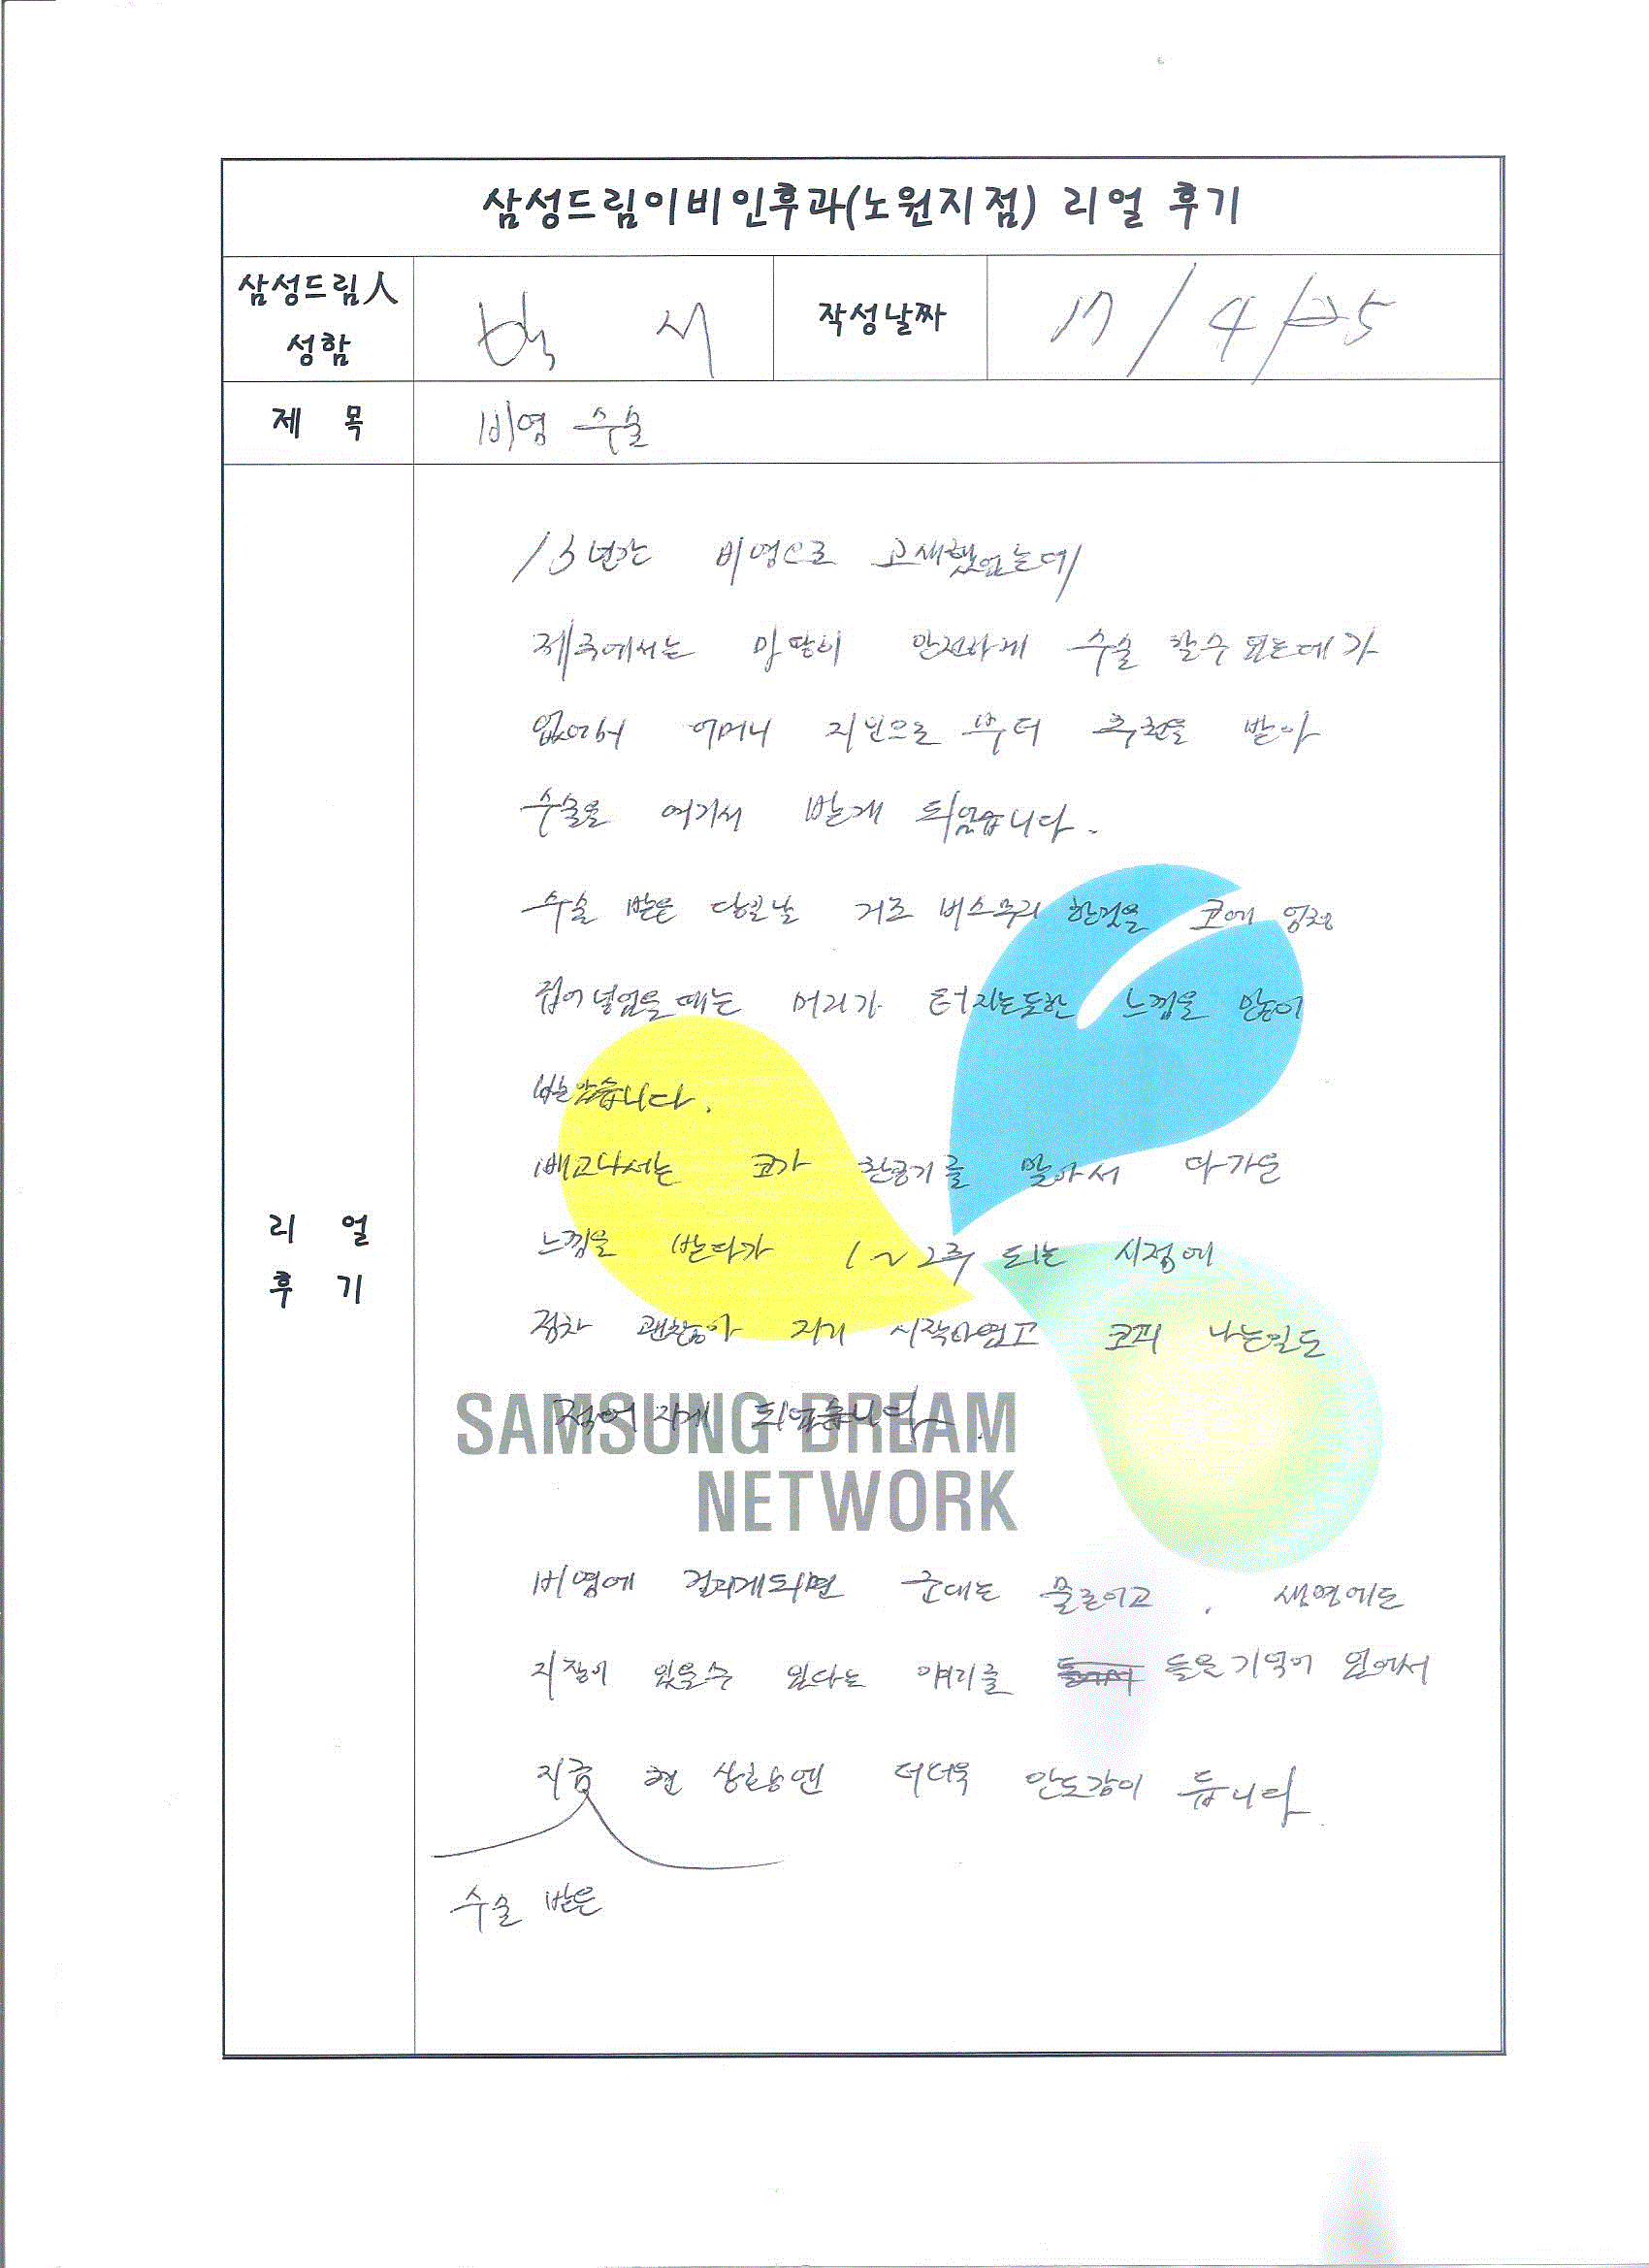 삼성드림이비인후과(노원지점) 리얼 후기
삼성드림人
성함
박 서
작성날짜
17/4/25
제 목
비염 수술
리 얼
후 기
13년간 비염으로 고생했었는데
제주에서는 마땅히 안전하게 수술 할수 있는데가
없어서 어머니 지인으로 부터 추천을 받아
수술을 여기서 받게 되었습니다.
수술 받은 당일날 거즈 비스무리 한것을 코에
집어 넣었을 때는 머리가 터지는듯한 느낌을 많이
받았습니다.
빼고나서는 코가 찬공기를 맡아서 따가운
느낌을 받다가 1~2주 되는 시점에
점차 괜찮아 지기 시작하였고 코피 나는일도
적어 지게 되었습니다.
SAMSUNG DREAM
NETWORK
비염에 걸리게되면 군대는 물론이고, 생명에도
지장이 있을수 있다는 얘기를 들은기억이 있어서
지금 현 상황엔 더더욱 안도감이 듭니다.
수술 받은